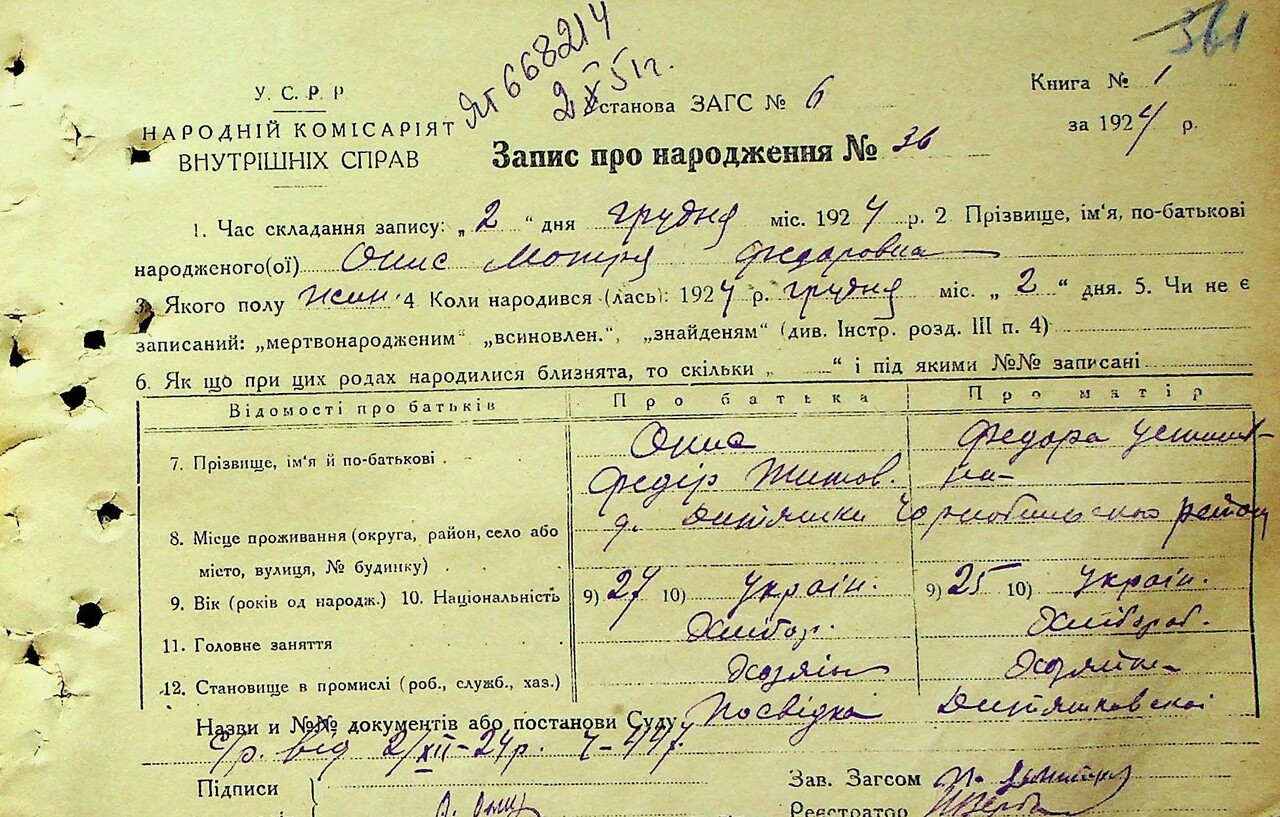 361
ЯТ 668214
2 X 51 г.
У. С. Р. Р
НАРОДНІЙ КОМІСАРІЯТ
ВНУТРІШНІХ СПРАВ
Установа ЗАГС № 6
Книга № 1
за 1924 р.
Запис про народження № 36
1. Час складання запису: „ 2 “ дня грудня міс. 1924 р. 2 Прізвище, ім'я, по-батькові
народженого(ої) Опис Мотря Федоровна
3. Якого полу жін. 4. Коли народився (лась): 1924 р. грудня міс. „ 2 “ дня. 5. Чи не є
записаний: „мертвонародженим“ „всиновлен.“, „знайденям“ (див. Інстр. розд. III п. 4)
6. Як що при цих родах народилися близнята, то скільки „ “ і під якими №№ записані
Відомості про батьків Про батька Про матір
7. Прізвище, ім'я й по-батькові Опис Федора Устимів-
Федір Титов. на-
8. Місце проживання (округа, район, село або д. Дитятки Чорнобильского району
місто, вулиця, № будинку)
9. Вік (років од народж.) 10. Національність 9) 27 10) Україн. 9) 25 10) Україн.
11. Головне заняття Хлібор. Хлібороб.
12. Становище в промислі (роб., служб., хаз.) Хозяїн Хозяйка
Назви и №№ документів або постанови Суду Посвідка Дитятковскої
с/р. від 2/XII-24 р. Ч-447.
Підписи
Зав. Загсом
Реєстратор